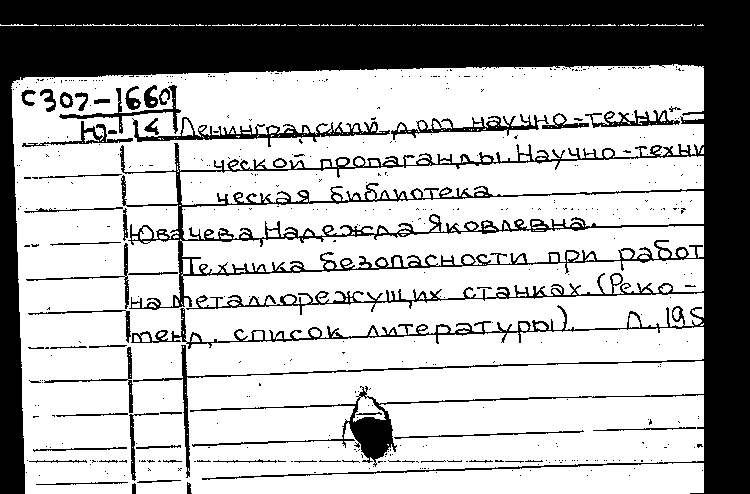 С307-1660
Ю-14 Ленинградский дом научно-техни-
ческой пропаганды. Научно-техни
ческая библиотека.
Ювачева, Надежда Яковлевна.
Техника безопасности при работ
на металлорежущих станках. (Реко-
менд. список литературы). Л., 195